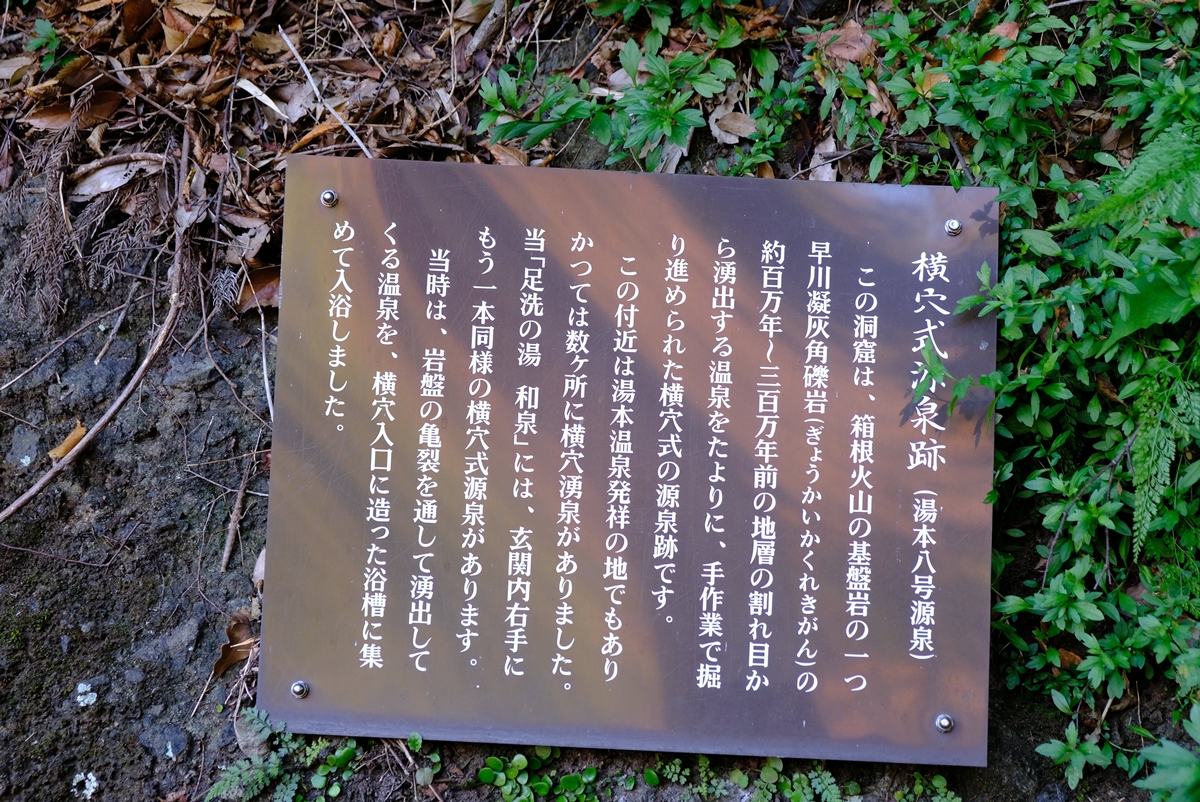 横穴式源泉跡（湯本八号源泉）
この洞窟は、箱根火山の基盤岩の一つ
早川凝灰角礫岩（ぎょうかいかくれきがん）の
約百万年～三百万年前の地層の割れ目か
ら湧出する温泉をたよりに、手作業で掘
り進められた横穴式の源泉跡です。
この付近は湯本温泉発祥の地でもあり
かつては数ヶ所に横穴湧泉がありました。
当「足洗の湯　和泉」には、玄関内右手に
もう一本同様の横穴式源泉があります。
当時は、岩盤の亀裂を通して湧出して
くる温泉を、横穴入口に造った浴槽に集
めて入浴しました。